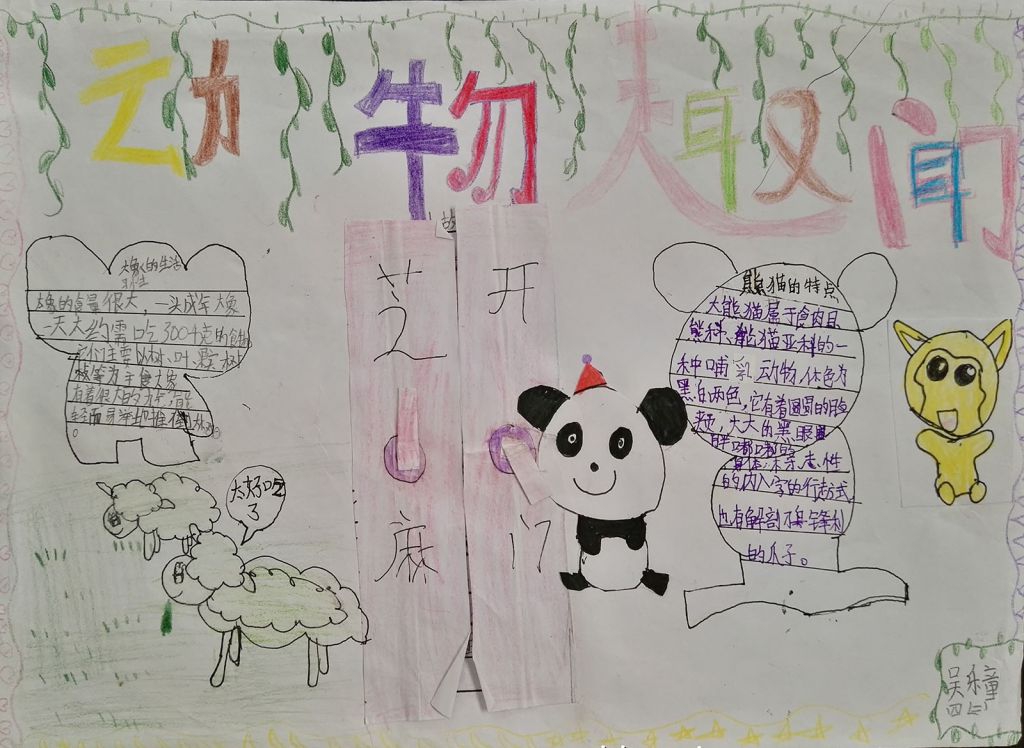 动物趣闻
大象的生活
习性
大象的食量很大，一头成年大象
一天大约需吃300千克的食物
它们主要以树叶、颗、树
枝等为主食大象
有着很大的力气，能
轻而易举地推倒大树
。
太好吃
了
芝麻
开门
熊猫的特点
大熊猫属于食肉目、
熊科、熊猫亚科的一
种哺乳动物，体色为
黑白两色，它有着圆圆的脸
颊，大大的黑眼圈
胖嘟嘟的
身体，标志性
的内八字的行走方式
也有解剖刀锋利
的爪子。
吴乐童